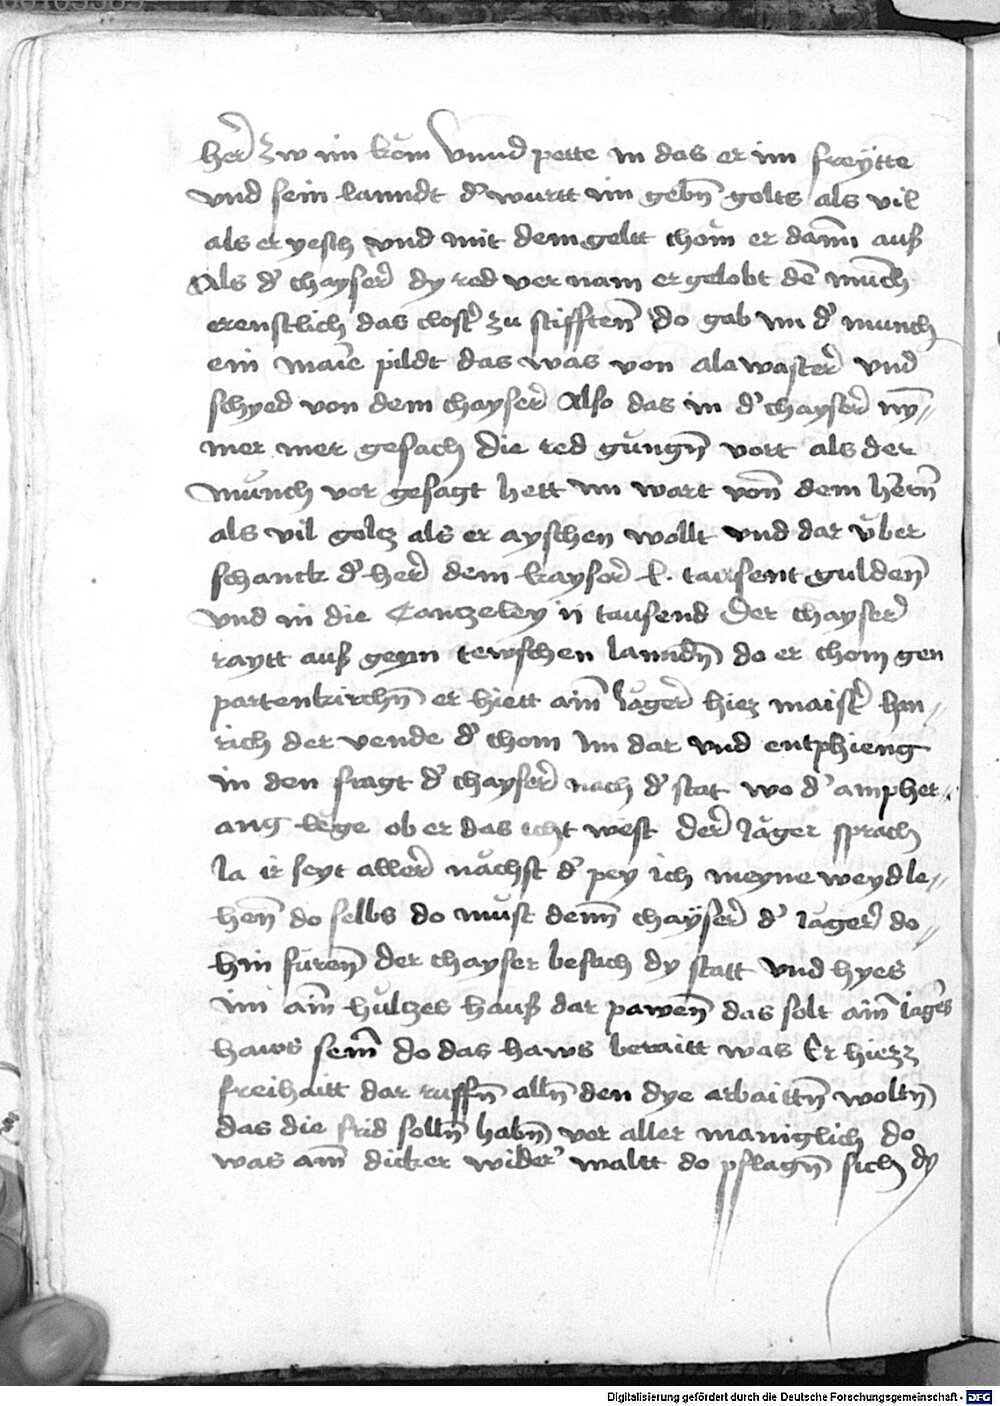 her zw im kom vnnd pette in das er im freytte
vnd sein lanndt d' wurtt im gebn golts als vil
als er yesch vnd mit dem geltt chom er dann auß
Als d' chayser dy red ver nam er gelobt de munch
erenstlich das clost' zu stifften do gab im d' munch
ein marie pildt das was von alawaster vnd
schyed von dem chayser Also das in d' chayser ny„
mer mer gesach Die red gungn vort als der
munch vor gesagt hett im wart von dem hern
als vil goltz als er ayschen wollt vnd dar vber
schanck d' her dem kayser l. tausent gulden
vnd in die Cantzeley ij tausend Der chayser
raytt auß geyn tewschen lanndn do er chom gen
partenkirchn er hiett ain Jager hiez maist' hin„
rich der vende d' chom im dar vnd entphieng
in den fragt d' chayser nach d' stat wo d' amphet„
ang lege ob er das icht west Der Jager sprach
Ja ir seyt aller nachst d' pey ich meyne weydle„
hen do selbs do must denn chayser d' Jager do„
hin furen Der chayser besach dy statt vnd hyes
im ain hultzes hauß dar pawen das solt ain Jagers
haws sein do das haws beraitt was Er hiezz
freihaitt dar ruffn alln den dye arbaittn woltn
das die frid solln habn vor aller maniglich do
was ain dicker wilder waltt do pflagn sich dy
Digitalisierung gefördert durch die Deutsche Forschungsgemeinschaft - DFG